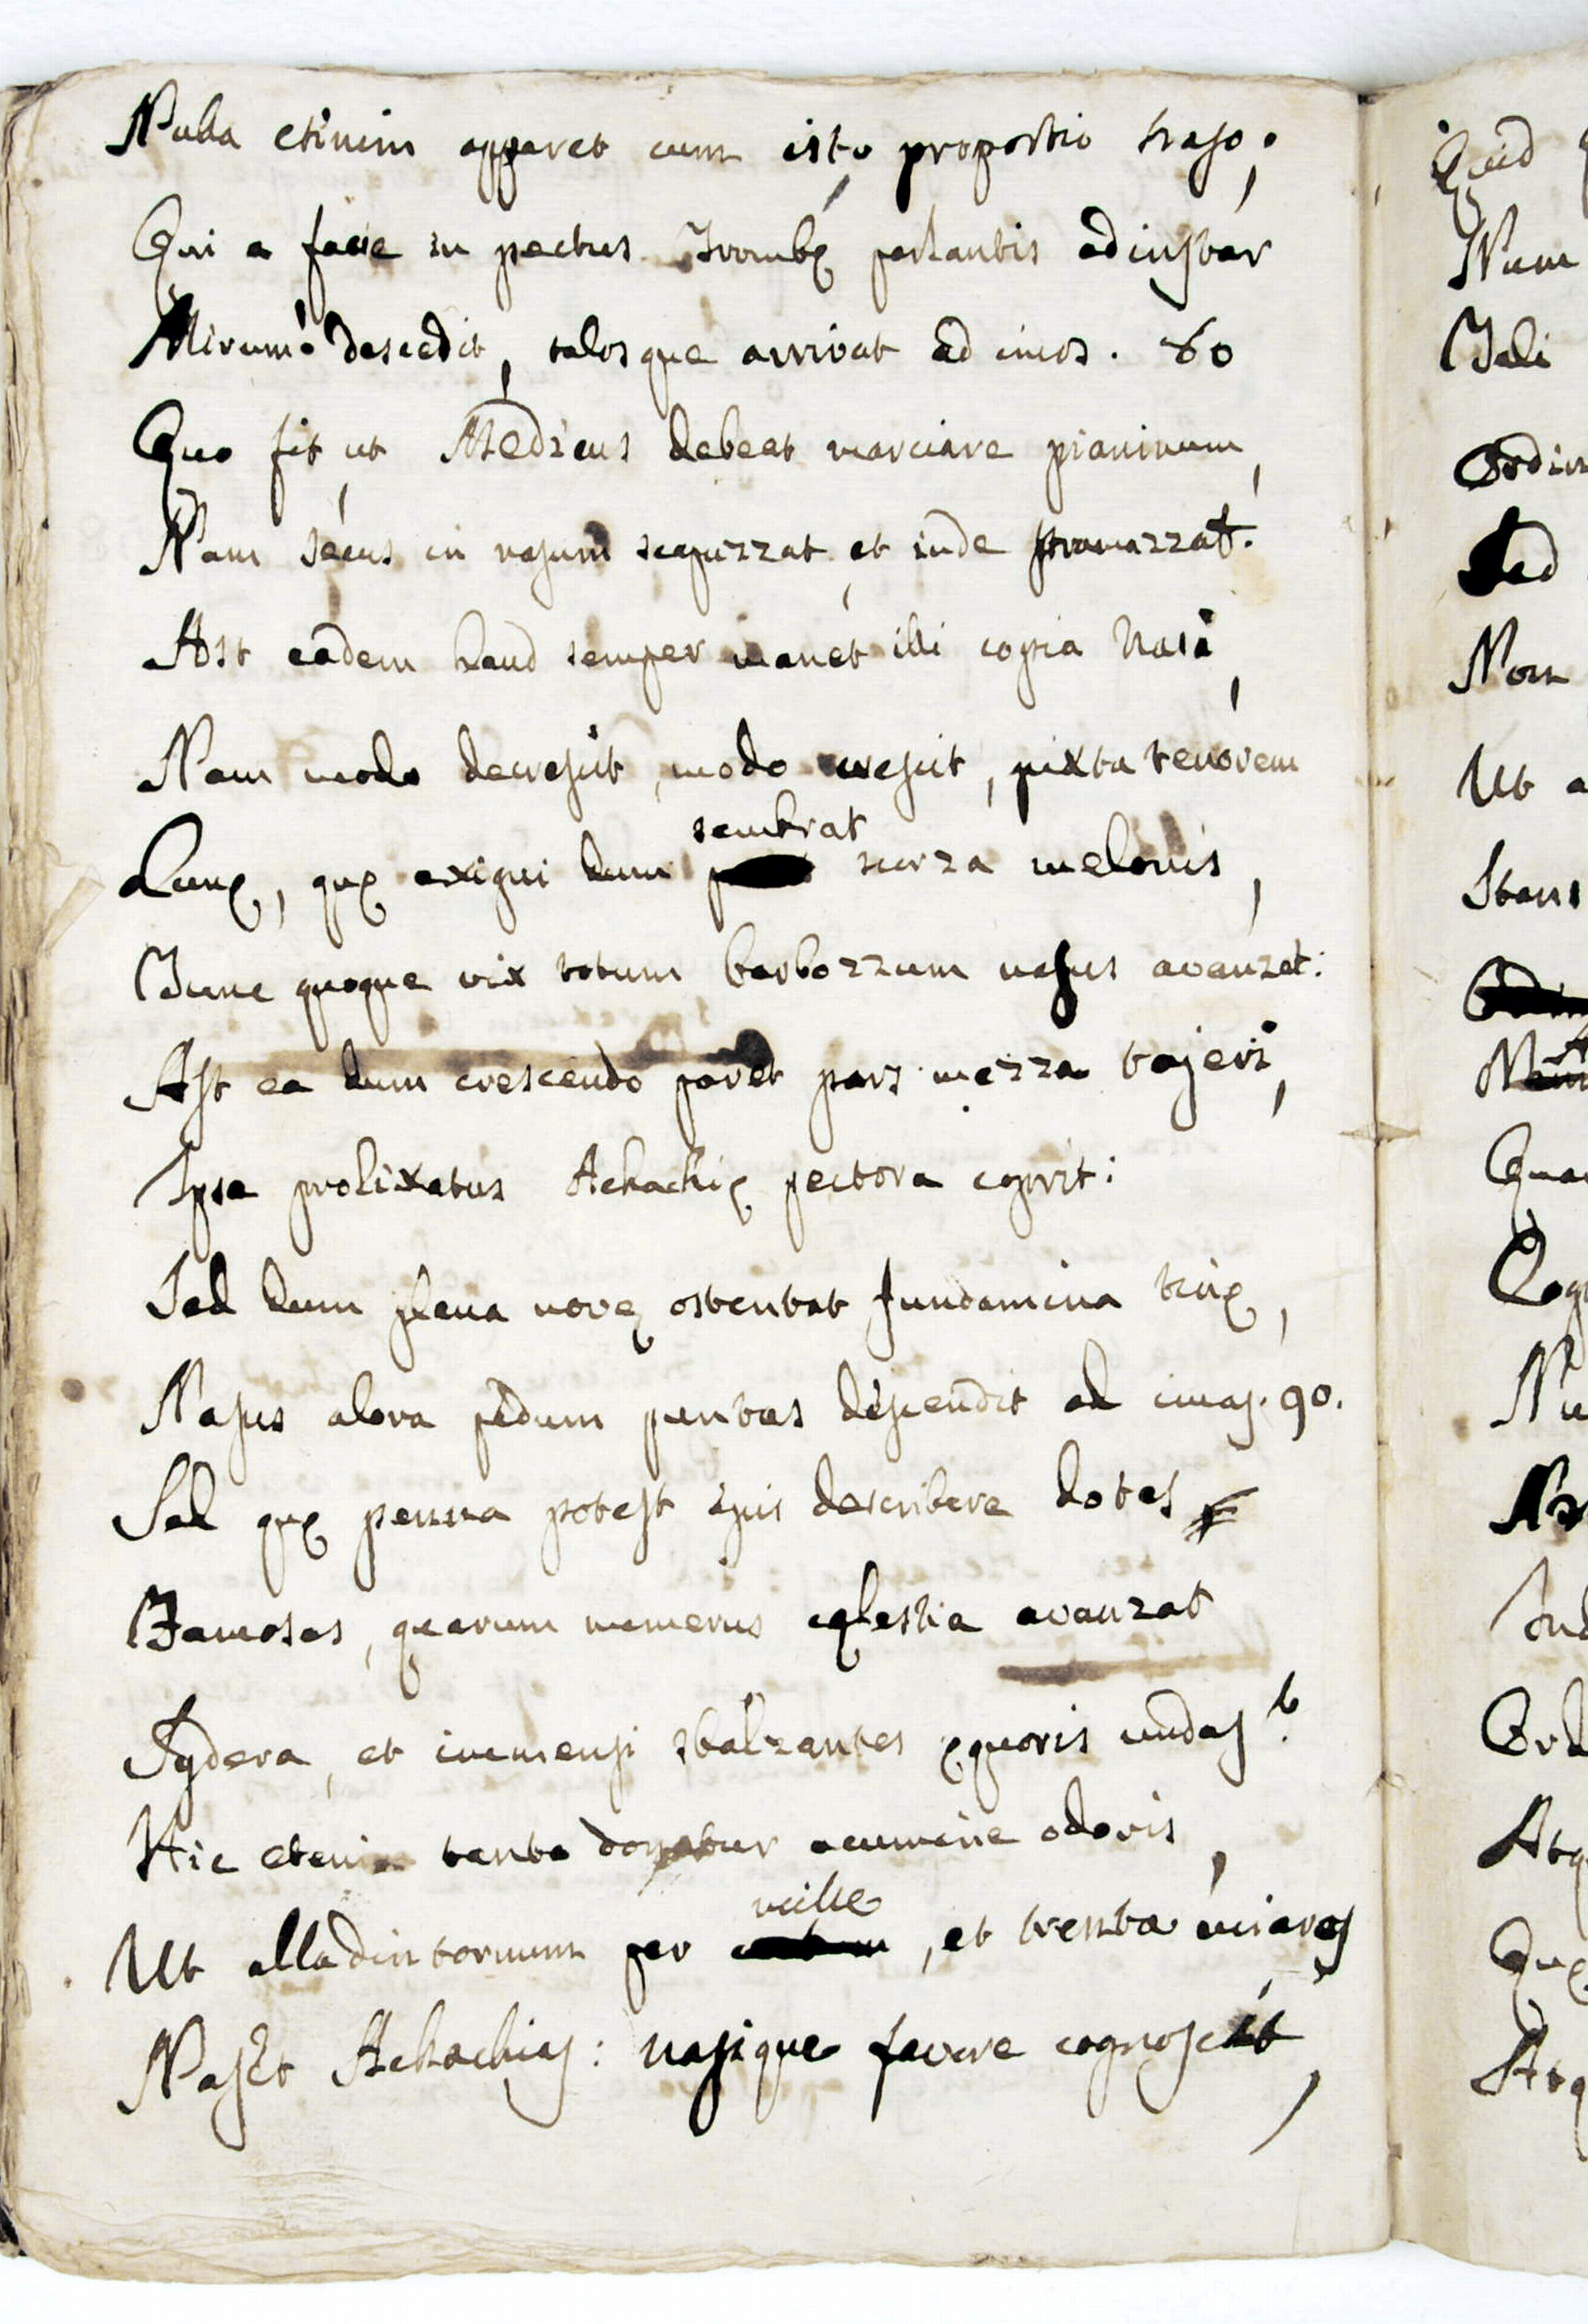 Nulla etinim apparet cum isto proportio naso,
Qui a facie in pectus Trombę parlantis ad instar
Mirum! descedit, talosque arrivat ad imos. 80
Quo fit, ut Medicus debeat marciare pianinum,
Nam secus in nasum scapuzzat, et inde stramazzat.
Ast eadem haud semper manet illi copia Nasi,
Nam modo decrescit, modo crescit, juxta tenorem
Lunę, quę exigui dum sembrat scorza melonis,
Tunc quoque vix totum barbozzum nasus avanzat:
Ast ea dum crescendo paret pars mezza tajeri,
Ipse prolixatus Achachię pectora coprit:
Sed dum plena novę ostentat fundamina tinę,
Nasus alora pedum puntas descendit ad imas. 90.
Sed quę penna potest ipsis describere dotes
Famosas, quarum numerus cęlestia avanzat
Sydera, et immensi sbalzantes ęquoris undas?
Hic etenim tanto donatur acumine odoris,
Ut alladintornum per mille, et trenta miaros
Naset Achachias: nasique favore cognoscit,
Quid
Num
Tali
Ordin
Sed
Non
Ut a
Stans
Nu